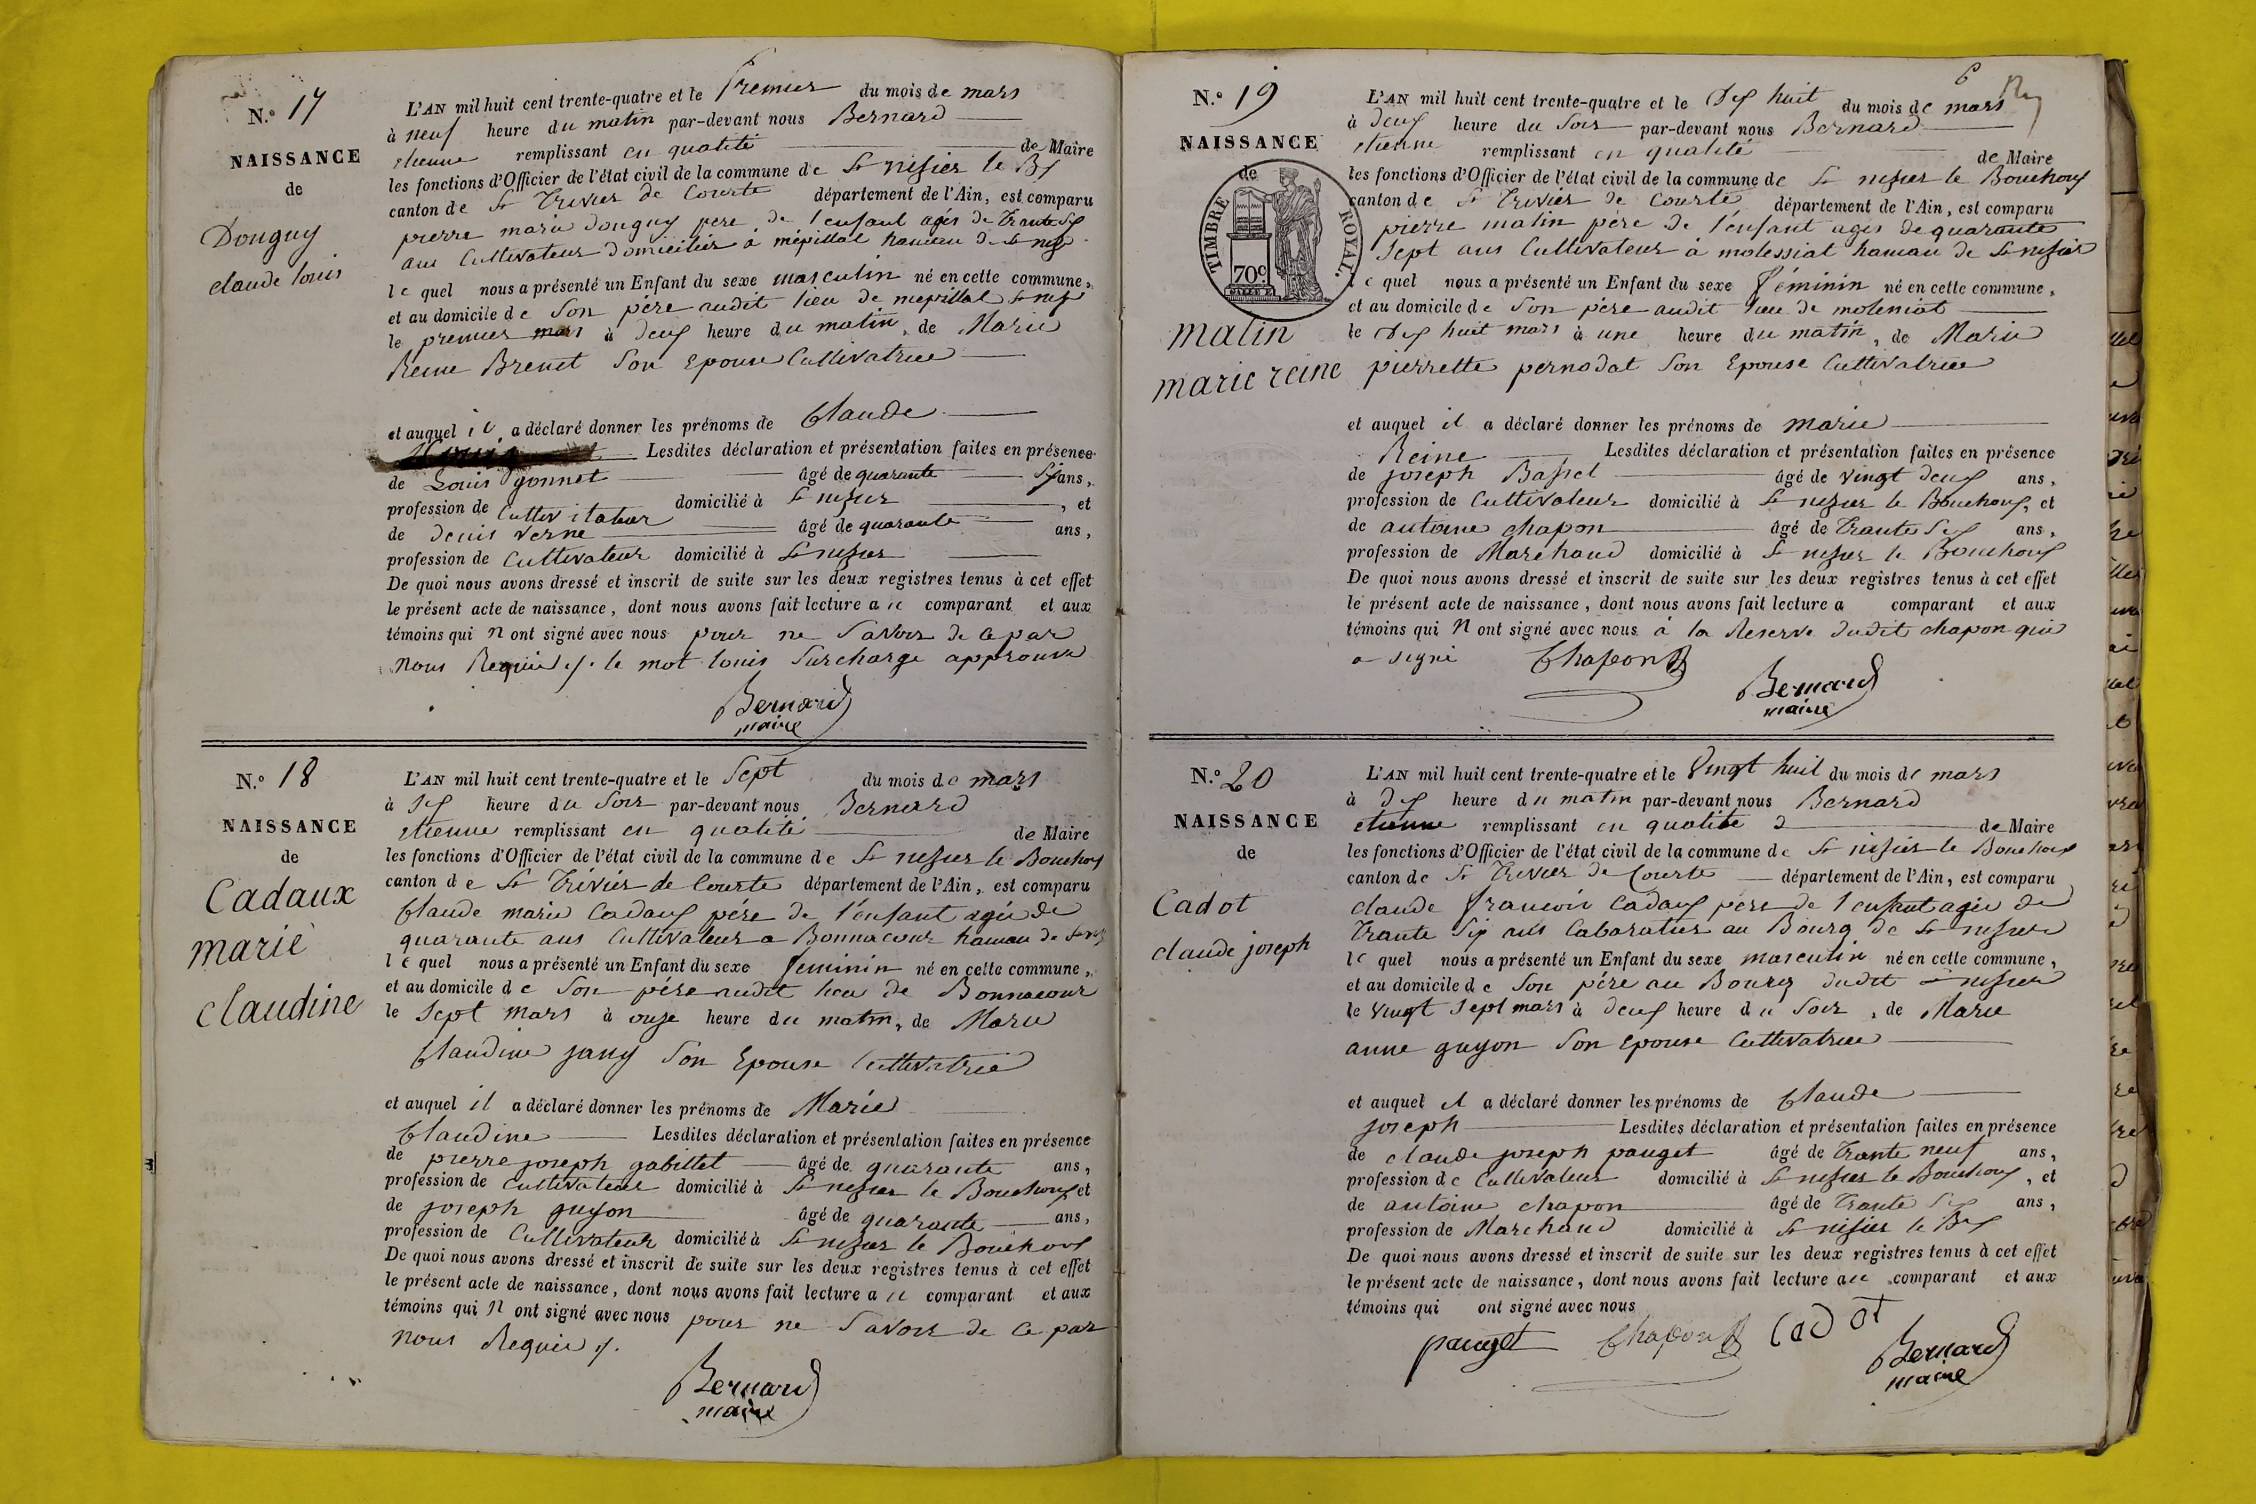 N.o 17
NAISSANCE
de
Douguy
claude louis
L'AN mil huit cent trente-quatre et le Premier du mois de mars
à neuf heure du matin par-devant nous Bernard
etienne remplissant en qualité de Maire
les fonctions d'Officier de l'état civil de la commune de St nisier le Bx
canton de St Trivier de Courte département de l'Ain, est comparu
pierre marie douguy pere de l'enfant agés de Trante
ans Cultivateur domicilier à mépillat hameau de St
le quel nous a présenté un Enfant du sexe masculin né en cette commune,
et au domicile de Son pére audit lieu de mepillat St
le premier mars à deux heure du matin, de Marie
Reine Brenet Son Epouse Cultivatrice
et auquel il a déclaré donner les prénoms de Claude
Louis Lesdites déclaration et présentation faites en présence
de Louis gonnet âgé de quarante ans,
profession de Cultivitateur domicilié à St nisier, et
de denis verne âgé de quarante ans,
profession de Cultivateur domicilié à St nisier
De quoi nous avons dressé et inscrit de suite sur les deux registres tenus à cet effet
le présent acte de naissance, dont nous avons fait lecture au comparant et aux
témoins qui n ont signé avec nous pour ne Savoir de ce par
nous Requis le mot louis Surchargé approuvé
Bernard
maire
N.o 18
NAISSANCE
de
Cadaux
marie
claudine
L'AN mil huit cent trente-quatre et le Sept du mois de mars
à Six heure du Soir par-devant nous Bernard
etienne remplissant en qualité de Maire
les fonctions d'Officier de l'état civil de la commune de St nisier le Bouchoux
canton de St Trévier de Courte département de l'Ain, est comparu
Claude marie Cadaux pére de l'enfant agée de
quarante ans Cultivateur a Bonnacour hameau de
le quel nous a présenté un Enfant du sexe feminin né en cette commune,
et au domicile de Son pére audit lieu de Bonnacour
le Sept mars à onze heure du matin, de Marie
Claudine jany Son Epouse Cultivatrice
et auquel il a déclaré donner les prénoms de Marie
Claudine Lesdites déclaration et présentation faites en présence
de pierre joseph gabillet âgé de quarante ans,
profession de Cultivateur domicilié à St nisier le Bouchoux et
de joseph guyon âgé de quarante ans,
profession de Cultivateur domicilié à St nisier le Bouchoux
De quoi nous avons dressé et inscrit de suite sur les deux registres tenus à cet effet
le présent acte de naissance, dont nous avons fait lecture au comparant et aux
témoins qui n ont signé avec nous pour ne Savoir de ce par
nous Requis
Bernard
maire
6
N.o 19
NAISSANCE
de
TIMBRE ROYAL.
70c
matin
marie reine
L'AN mil huit cent trente-quatre et le Dix huit du mois de mars
à deux heure du Soir par-devant nous Bernard
etienne remplissant en qualité de Maire
les fonctions d'Officier de l'état civil de la commune de St nisier le Bouchoux
canton de St Trivier de Courte département de l'Ain, est comparu
pierre matin pére de l'enfant agés de quarante
Sept ans Cultivateur à molessiat hameau de St nisier
le quel nous a présenté un Enfant du sexe féminin né en cette commune,
et au domicile de Son pére audit lieu de moleniat
le Dix huit mars à une heure du matin, de Marie
pierrette pernodat Son Epouse Cultivatrice
et auquel il a déclaré donner les prénoms de marie
Reine Lesdites déclaration et présentation faites en présence
de joseph Basset âgé de vingt deux ans,
profession de Cultivateur domicilié à St nisier le Bouchoux, et
de antoine chapon âgé de Trante Six ans,
profession de Marchand domicilié à St nisier le Bouchoux
De quoi nous avons dressé et inscrit de suite sur les deux registres tenus à cet effet
le présent acte de naissance, dont nous avons fait lecture a comparant et aux
témoins qui n ont signé avec nous à la Reserve dudit chapon qui
a signé Chapon
Bernard
maire
N.o 20
NAISSANCE
de
Cadot
claude joseph
L'AN mil huit cent trente-quatre et le Vingt huit du mois de mars
à Dix heure du matin par-devant nous Bernard
etienne remplissant en qualité de Maire
les fonctions d'Officier de l'état civil de la commune de St nisier le Bouchoux
canton de St Trivier de Courte département de l'Ain, est comparu
claude françois Cadaux pére de l'enfant agée de
Trante Six ans Cabaratier au Bourg de St nisier
le quel nous a présenté un Enfant du sexe masculin né en cette commune,
et au domicile de Son pére au Bourg dudit St nisier
le vingt sept mars à deux heure du Soir, de Marie
anne guyon Son epouse Cultivatrice
et auquel il a déclaré donner les prénoms de Claude
joseph Lesdites déclaration et présentation faites en présence
de claude joseph pauget âgé de Trante neuf ans,
profession de Cultivateur domicilié à St nisier le Bouchoux, et
de antoine chapon âgé de Trante Six ans,
profession de Marchand domicilié à St nisier le Bx
De quoi nous avons dressé et inscrit de suite sur les deux registres tenus à cet effet
le présent acte de naissance, dont nous avons fait lecture au comparant et aux
témoins qui ont signé avec nous
pauget Chapon CADOT
Bernard
maire